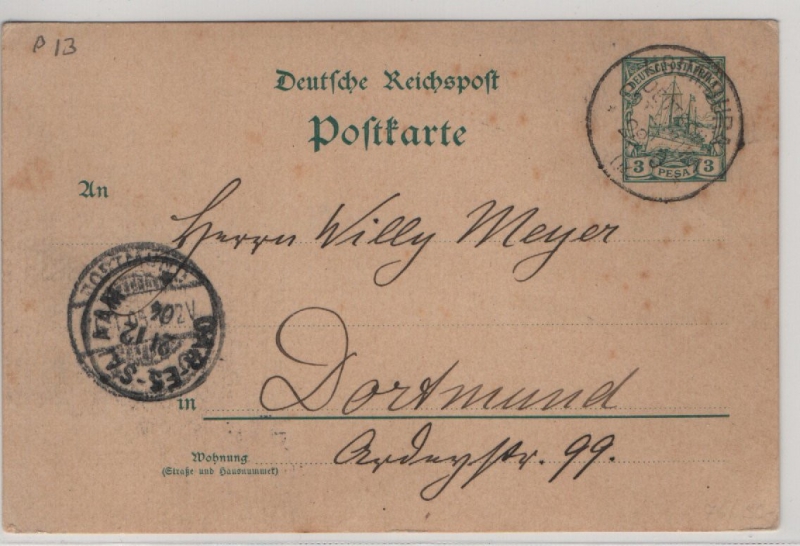 p 13
Deutsche Reichspost
Postkarte
DEUTSCH-OSTAFRIKA
3 PESA 3
An
Herrn Willy Meyer
DAR-ES-SALAAM
21/12
04
in Dortmund
Wohnung
(Straße und Hausnummer)
Ardeystr. 99.